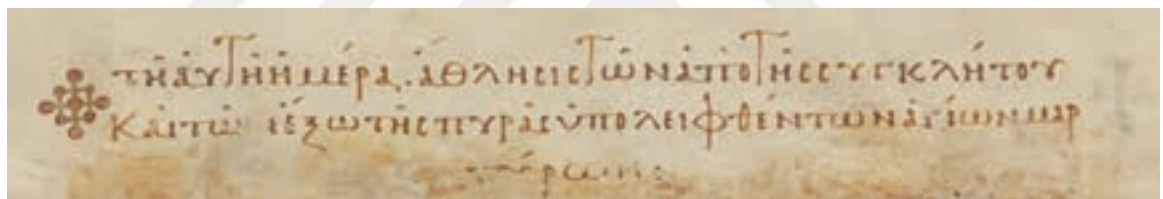 τῇ αὐτῇ ἡμέρᾳ. ἄθλησις τῶν ἀπὸ τῆς συγκλήτου
καὶ τῶ ἔξω τῆς πυρᾶς ὑπολειφθέντων ἁγίων μαρ
τύρων: